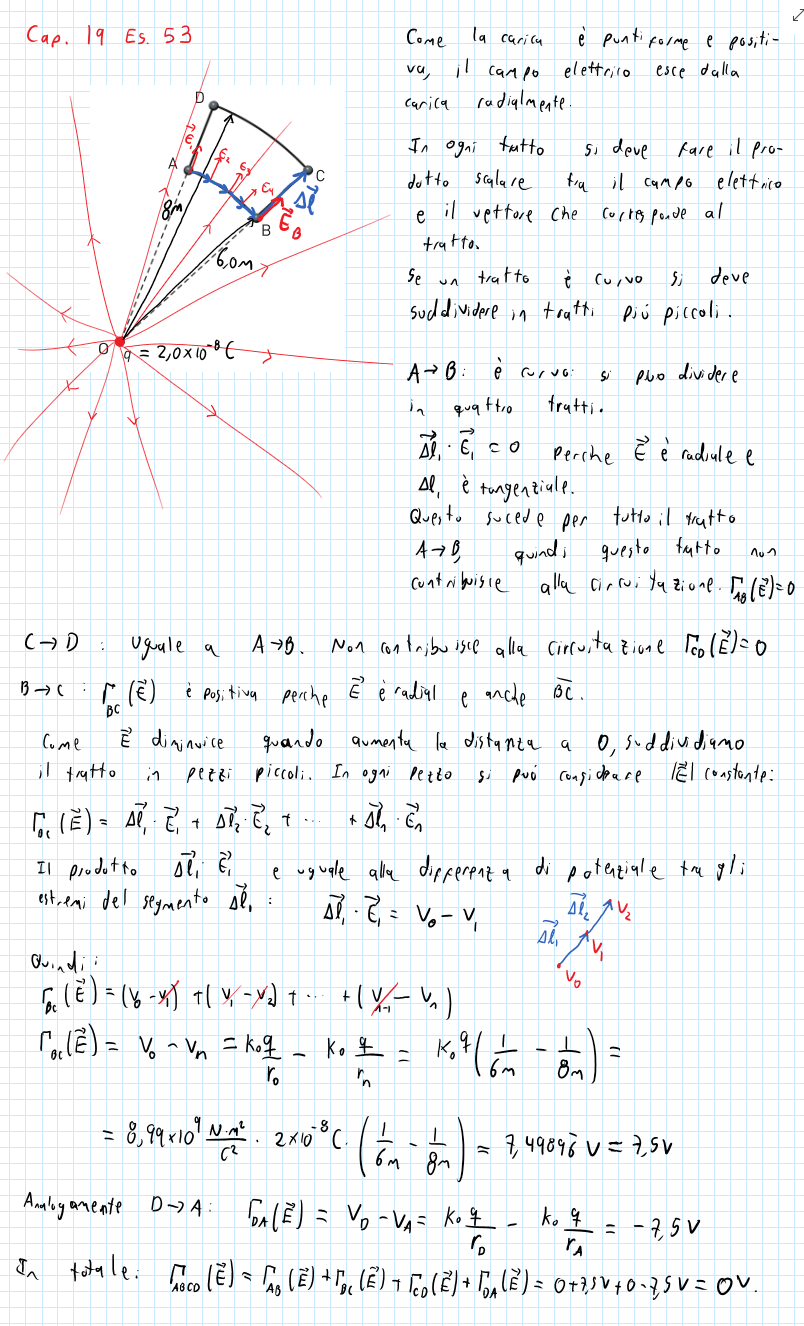 Cap. 19 Es. 53
D
A
E⃗₁
E₂
E₃
E₄
C
Δl⃗
B
E⃗_B
8m
6,0m
O
q = 2,0×10⁻⁸ C
Come la carica è puntiforme e positi-
va, il campo elettrico esce dalla
carica radialmente.
In ogni tratto si deve fare il pro-
dotto scalare tra il campo elettrico
e il vettore che corrisponde al
tratto.
Se un tratto è curvo si deve
suddividere in tratti più piccoli.
A→B: è curvo: si può dividere
in quattro tratti.
Δl⃗₁ · E⃗₁ = 0 perche E⃗ è radiale e
Δl₁ è tangenziale.
Questo succede per tutto il tratto
A→B, quindi questo tratto non
contribuisce alla circuitazione. Γ_AB(E⃗)=0
C→D : Uguale a A→B. Non contribuisce alla circuitazione Γ_CD(E⃗)=0
B→C : Γ_BC(E⃗) è positiva perche E⃗ è radial e anche B̅C̅.
Come E⃗ diminuice quando aumenta la distanza a O, suddividiamo
il tratto in pezzi piccoli. In ogni pezzo si può considerare |E⃗| constante:
Γ_BC(E⃗) = Δl⃗₁ · E⃗₁ + Δl⃗₂ · E⃗₂ + ... + Δl⃗n · E⃗n
Il prodotto Δl⃗₁ · E⃗₁ e uguale alla differenza di potenziale tra gli
estremi del segmento Δl⃗₁ : Δl⃗₁ · E⃗₁ = V₀ − V₁
Δl⃗₂ V₂
Δl⃗₁ V₁
V₀
Quindi:
Γ_BC(E⃗) = (V₀ − V₁) + (V₁ − V₂) + ... + (Vₙ₋₁ − Vₙ)
Γ_BC(E⃗) = V₀ − Vₙ = k₀ q/r₀ − k₀ q/rₙ = k₀ q (1/6m − 1/8m) =
= 8,99×10⁹ N·m²/C² · 2×10⁻⁸ C · (1/6m − 1/8m) = 7,49896̅ V = 7,5V
Analogamente D→A: Γ_DA(E⃗) = V_D − V_A = k₀ q/r_D − k₀ q/r_A = −7,5 V
In totale: Γ_ABCD(E⃗) = Γ_AB(E⃗) + Γ_BC(E⃗) + Γ_CD(E⃗) + Γ_DA(E⃗) = 0+7,5V+0−7,5V = 0V.